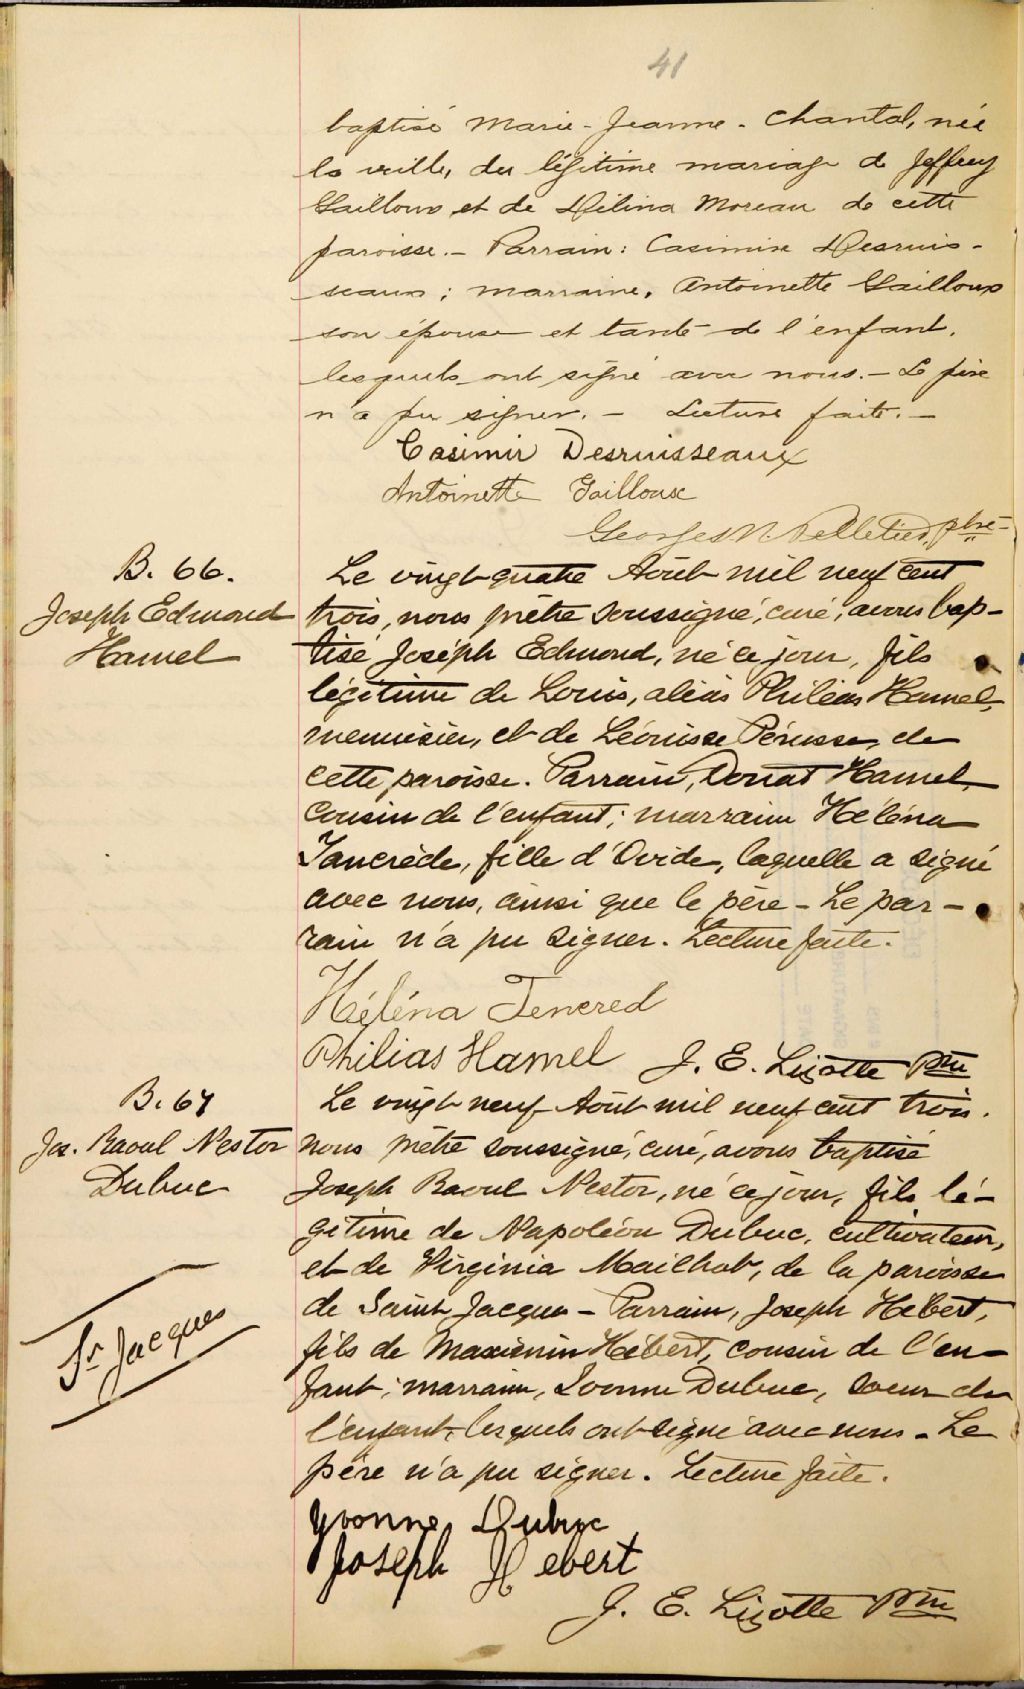 41
baptisé Marie-Jeanne-Chantal, née
la veille, du légitime mariage de Jeffrey
Gailloux et de Délina Moreau de cette
paroisse.- Parrain: Casimir Desruis-
seaux; marraine, Antoinette Gailloux
son épouse et tante de l'enfant,
lesquels ont signé avec nous.- Le père
n'a pu signer.- Lecture faite.-
Casimir Desruisseaux
Antoinette Gailloux
Georges N. Pelletier, ptre
B. 66.
Joseph Edmond
Hamel
Le vingt-quatre Août mil neuf cent
trois, nous prêtre soussigné, curé, avons bap-
tisé Joseph Edmond, né ce jour, fils
légitime de Louis, aliàs Philéas Hamel,
menuisier, et de Léonisse Pérusse, de
cette paroisse. Parrain, Donat Hamel,
cousin de l'enfant; marraine Héléna
Tancrède, fille d'Ovide, laquelle a signé
avec nous, ainsi que le père - Le par-
rain n'a pu signer. Lecture faite.
Héléna Tencred
Philias Hamel J. E. Lizotte Ptre
B. 67
Jos. Raoul Nestor
Dubuc
St Jacques
Le vingt neuf Août mil neuf cent trois.
nous prêtre soussigné, curé, avons baptisé
Joseph Raoul Nestor, né ce jour, fils lé-
gitime de Napoléon Dubuc, cultivateur,
et de Virginia Mailhot, de la paroisse
de Saint Jacques - Parrain, Joseph Hébert,
fils de Maximin Hébert, cousin de l'en-
fant; marraine, Ivonne Dubuc, soeur de
l'enfant, lesquels ont signé avec nous - Le
père n'a pu signer. Lecture faite.
Yvonne Dubuc
Joseph Hebert
J. E. Lizotte Ptre